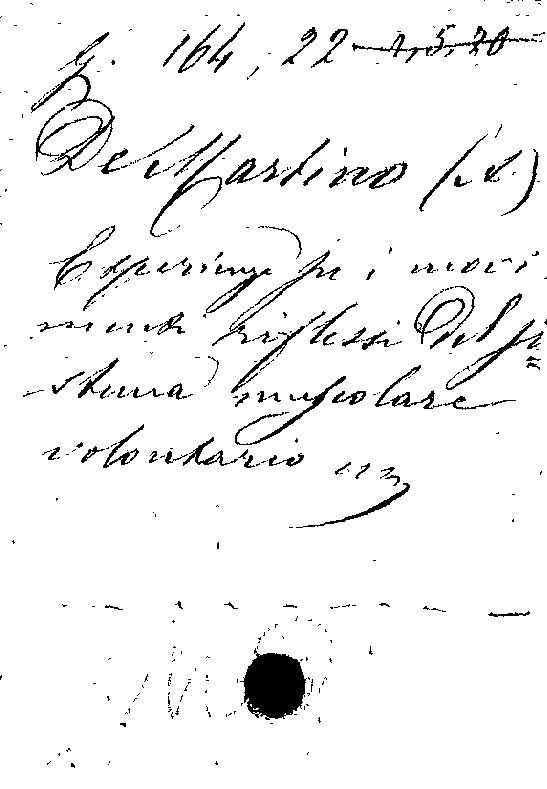 G. 164, 22 2,5,20
De Martino (A.)
Esperienze su i movi
menti riflessi del si=
stema muscolare
volontario